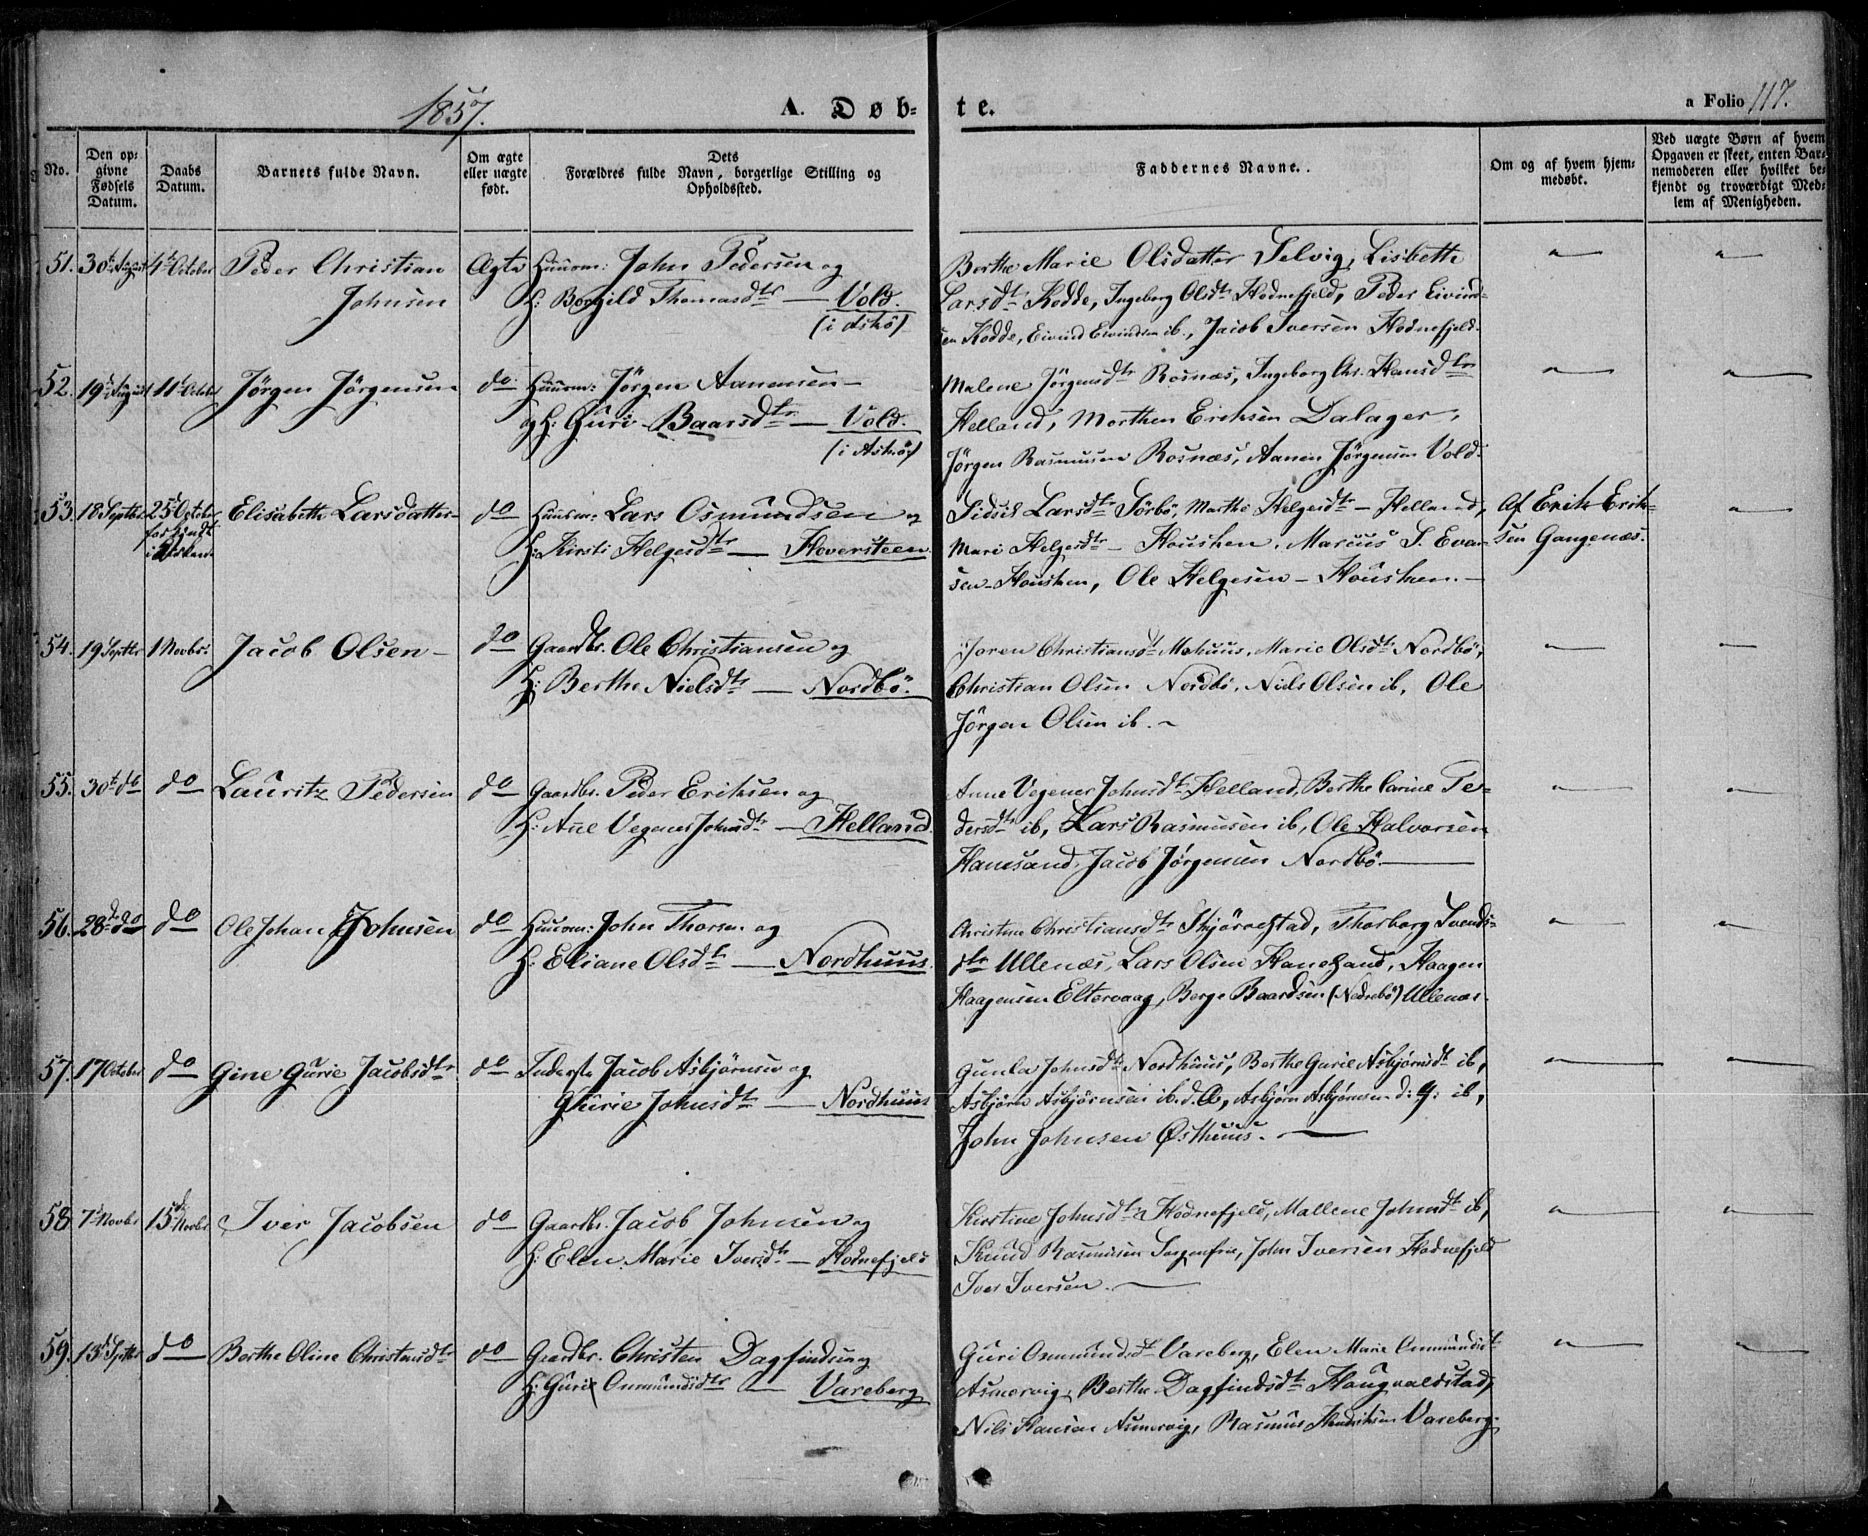 1857.
A. Døb-
te.
a Folio 117.
No.
Den op-
givne
Fødsels
Datum.
Daabs
Datum.
Barnets fulde Navn.
Om ægte
eller uægte
født.
Dets
Forældres fulde Navn, borgerlige Stilling og
Opholdssted.
Faddernes Navne.
Om og af hvem hjem-
medøbt.
Ved uægte Børn af hvem
Opgaven er skeet, enten Bar-
nemoderen eller hvilket be-
kjendt og troværdigt Med-
lem af Menigheden.
51. 30te August 4de October Peder Christian
Johnsen
Ægte Huusm: John Pedersen og
H: Borgild Thomasdtr — Vold.
(i Askø)
Berthe Marie Olsdatter Selvig, Lisbeth
Larsdtr Kodde, Ingeborg Olsdtr Hodnefjeld, Peder Eivind-
sen Kodde, Eivind Eivindsen ib., Jacob Iversen Hodnefjeld.
52. 19de August 11te October Jörgen Jörgensen
do. Huusm: Jörgen Aanensen —
og H: Guri Baarsdtr — Vold.
(i Askø)
Malene Jörgensdtr Rosnæs, Ingeborg Chr. Hansdtr
Helland, Morthen Eriksen Dalager,
Jörgen Rasmusen Rosnæs, Aanen Jörgensen Vold.
53. 18 Septbr 25de October
Elisabeth Larsdatter
do Huusm: Lars Osmundsen og
H: Kirsti Helgesdtr — Hoversteen.
Sidsel Larsdtr Sörbö, Marthe Helgesdtr — Helland,
Mari Helgesdtr — Houshen, Marcus S. Evar-
sen Houshen, Ole Helgesen — Houshen. —
Af Erik Erik-
sen Gangenæs.
54. 19 Septbr 1 Novbr. Jacob Olsen —
do Gaardbr. Ole Christiansen og
H: Berthe Nielsdtr — Nordbö.
Joren Christiansdtr Mehuus, Marie Olsdtr Nordbö,
Christian Olsen Nordbö, Niels Olsen ib, Ole
Jörgen Olsen ib. —
55. 30te do do Lauritz Pedersen
do Gaardbr. Peder Eriksen og
H: Ane Vegener Johnsdtr — Helland.
Anne Vegener Johnsdtr Helland, Berthe Carine Pe-
dersdtr ib, Lars Rasmusen ib, Ole Halvorsen
Hanesand, Jacob Jörgensen Nordbö —
56. 28de do do Ole Johan Johnsen
do Huusm: John Thorsen og
H: Eliane Olsdtr — Nordhuus.
Christine Christiansdtr Skjörrestad, Thorborg Svends-
dtr Ullenæs, Lars Olsen Hanesand, Haagen
Haagensen Eltervaag, Berge Baardsen (Nedrebö) Ullenæs.
57. 17 October do Gine Gurie Jacobsdtr
do Inderste Jacob Asbjörnsen og
Gurie Johnsdtr — Nordhuus
Gunla Johnsdtr Nordhuus, Berthe Gurie Asbjörnsdtr ib,
Asbjörn Asbjörnsen ib. d. Æ, Asbjörn Asbjörnsen d: y: ib,
John Johnsen Østhuus. —
58. 7de Novbr 15de Novbr Iver Jacobsen
do Gaardbr. Jacob Johnsen og
H: Elen Marie Iversdtr — Hodnefjeld
Kirstine Johnsdtr Hodnefjeld, Mallene Johnsdtr ib,
Knud Rasmusen Sorgenfrie, John Iversen Hodnefjeld
Iver Iversen. —
59. 13de Septbr do Berthe Oline Christensdtr
do Gaardbr. Christen Dagfindsen og
H: Guri Ommundsdtr — Vareberg
Guri Ommundsdtr Vareberg, Elen Marie Ommundsdtr
Asmervig, Berthe Dagfindsdtr Haugvaldstad,
Nils Hansen Asmervig, Rasmus Hendriksen Vareberg.